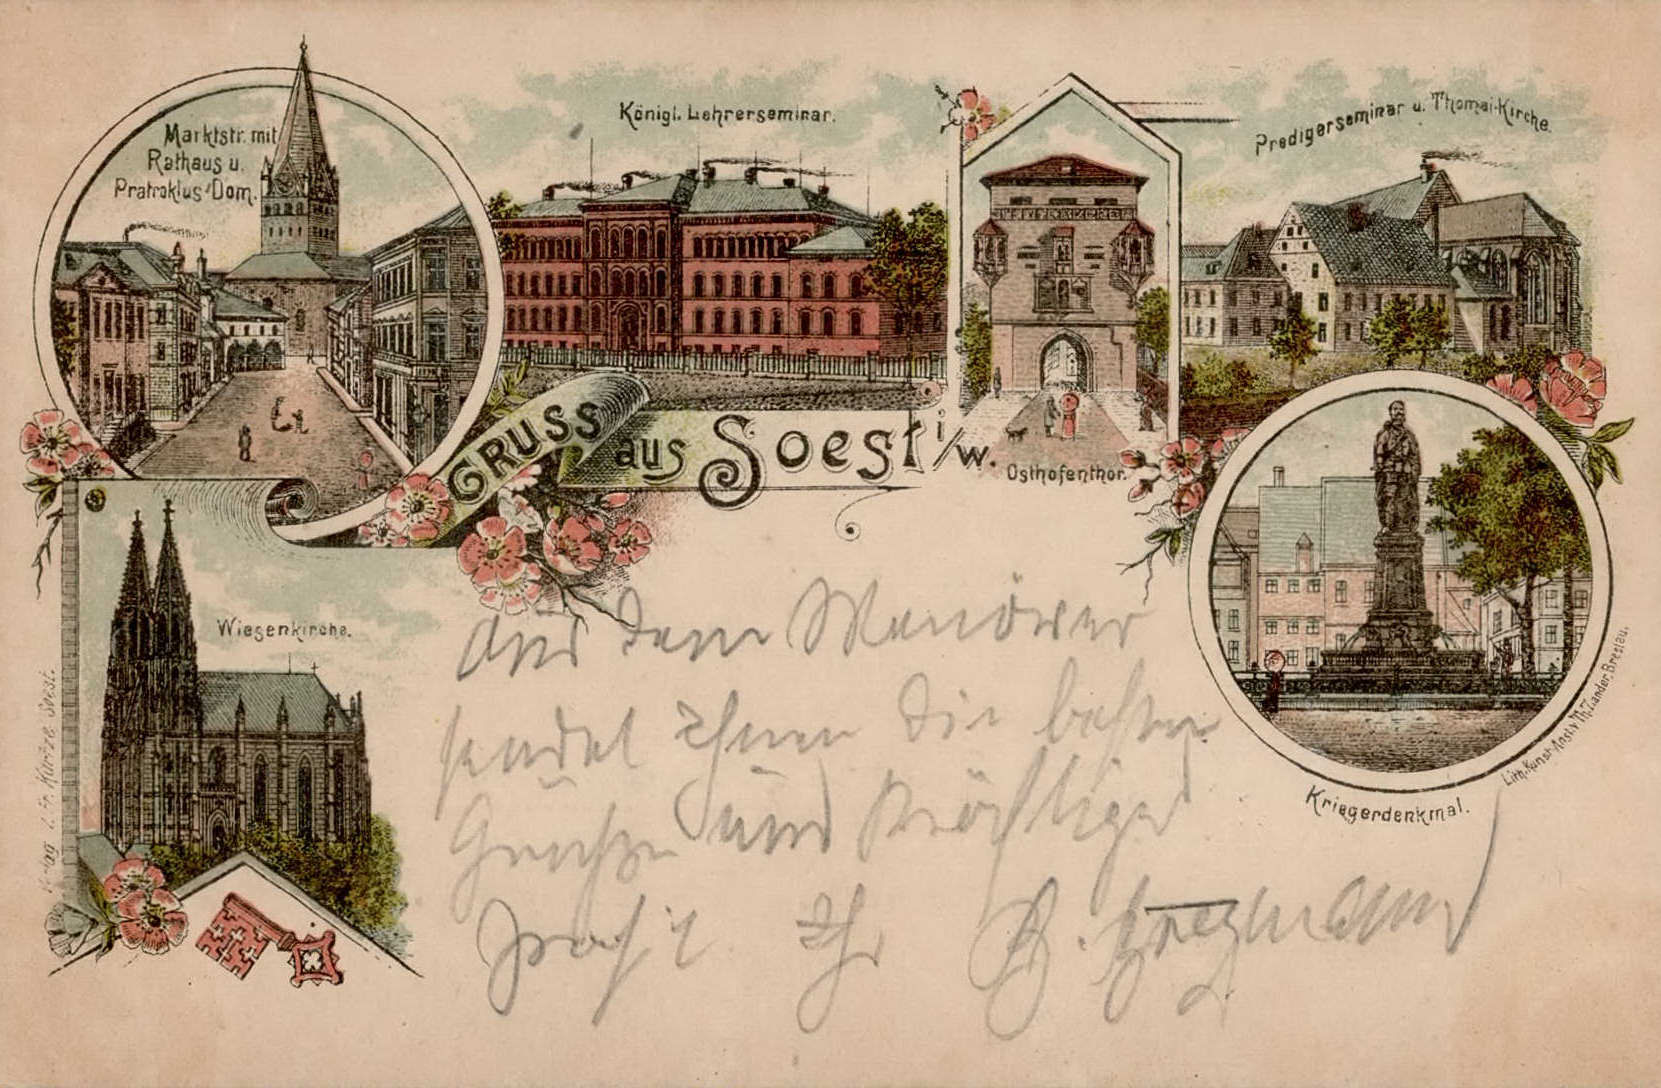 Marktstr. mit
Rathaus u.
Pratroklus-Dom.
Königl. Lehrerseminar.
Predigerseminar u. Thomai-Kirche.
GRUSS aus Soest i/w.
Osthofenthor.
Wiesenkirche.
Kriegerdenkmal.
Lith. Kunst-Anst. v. Th. Zander, Breslau.
Verlag Kurze Soest.
Aus dem Manöver
sendet Ihnen die besten
Grüsse und kräftiges
Prosit Ihr